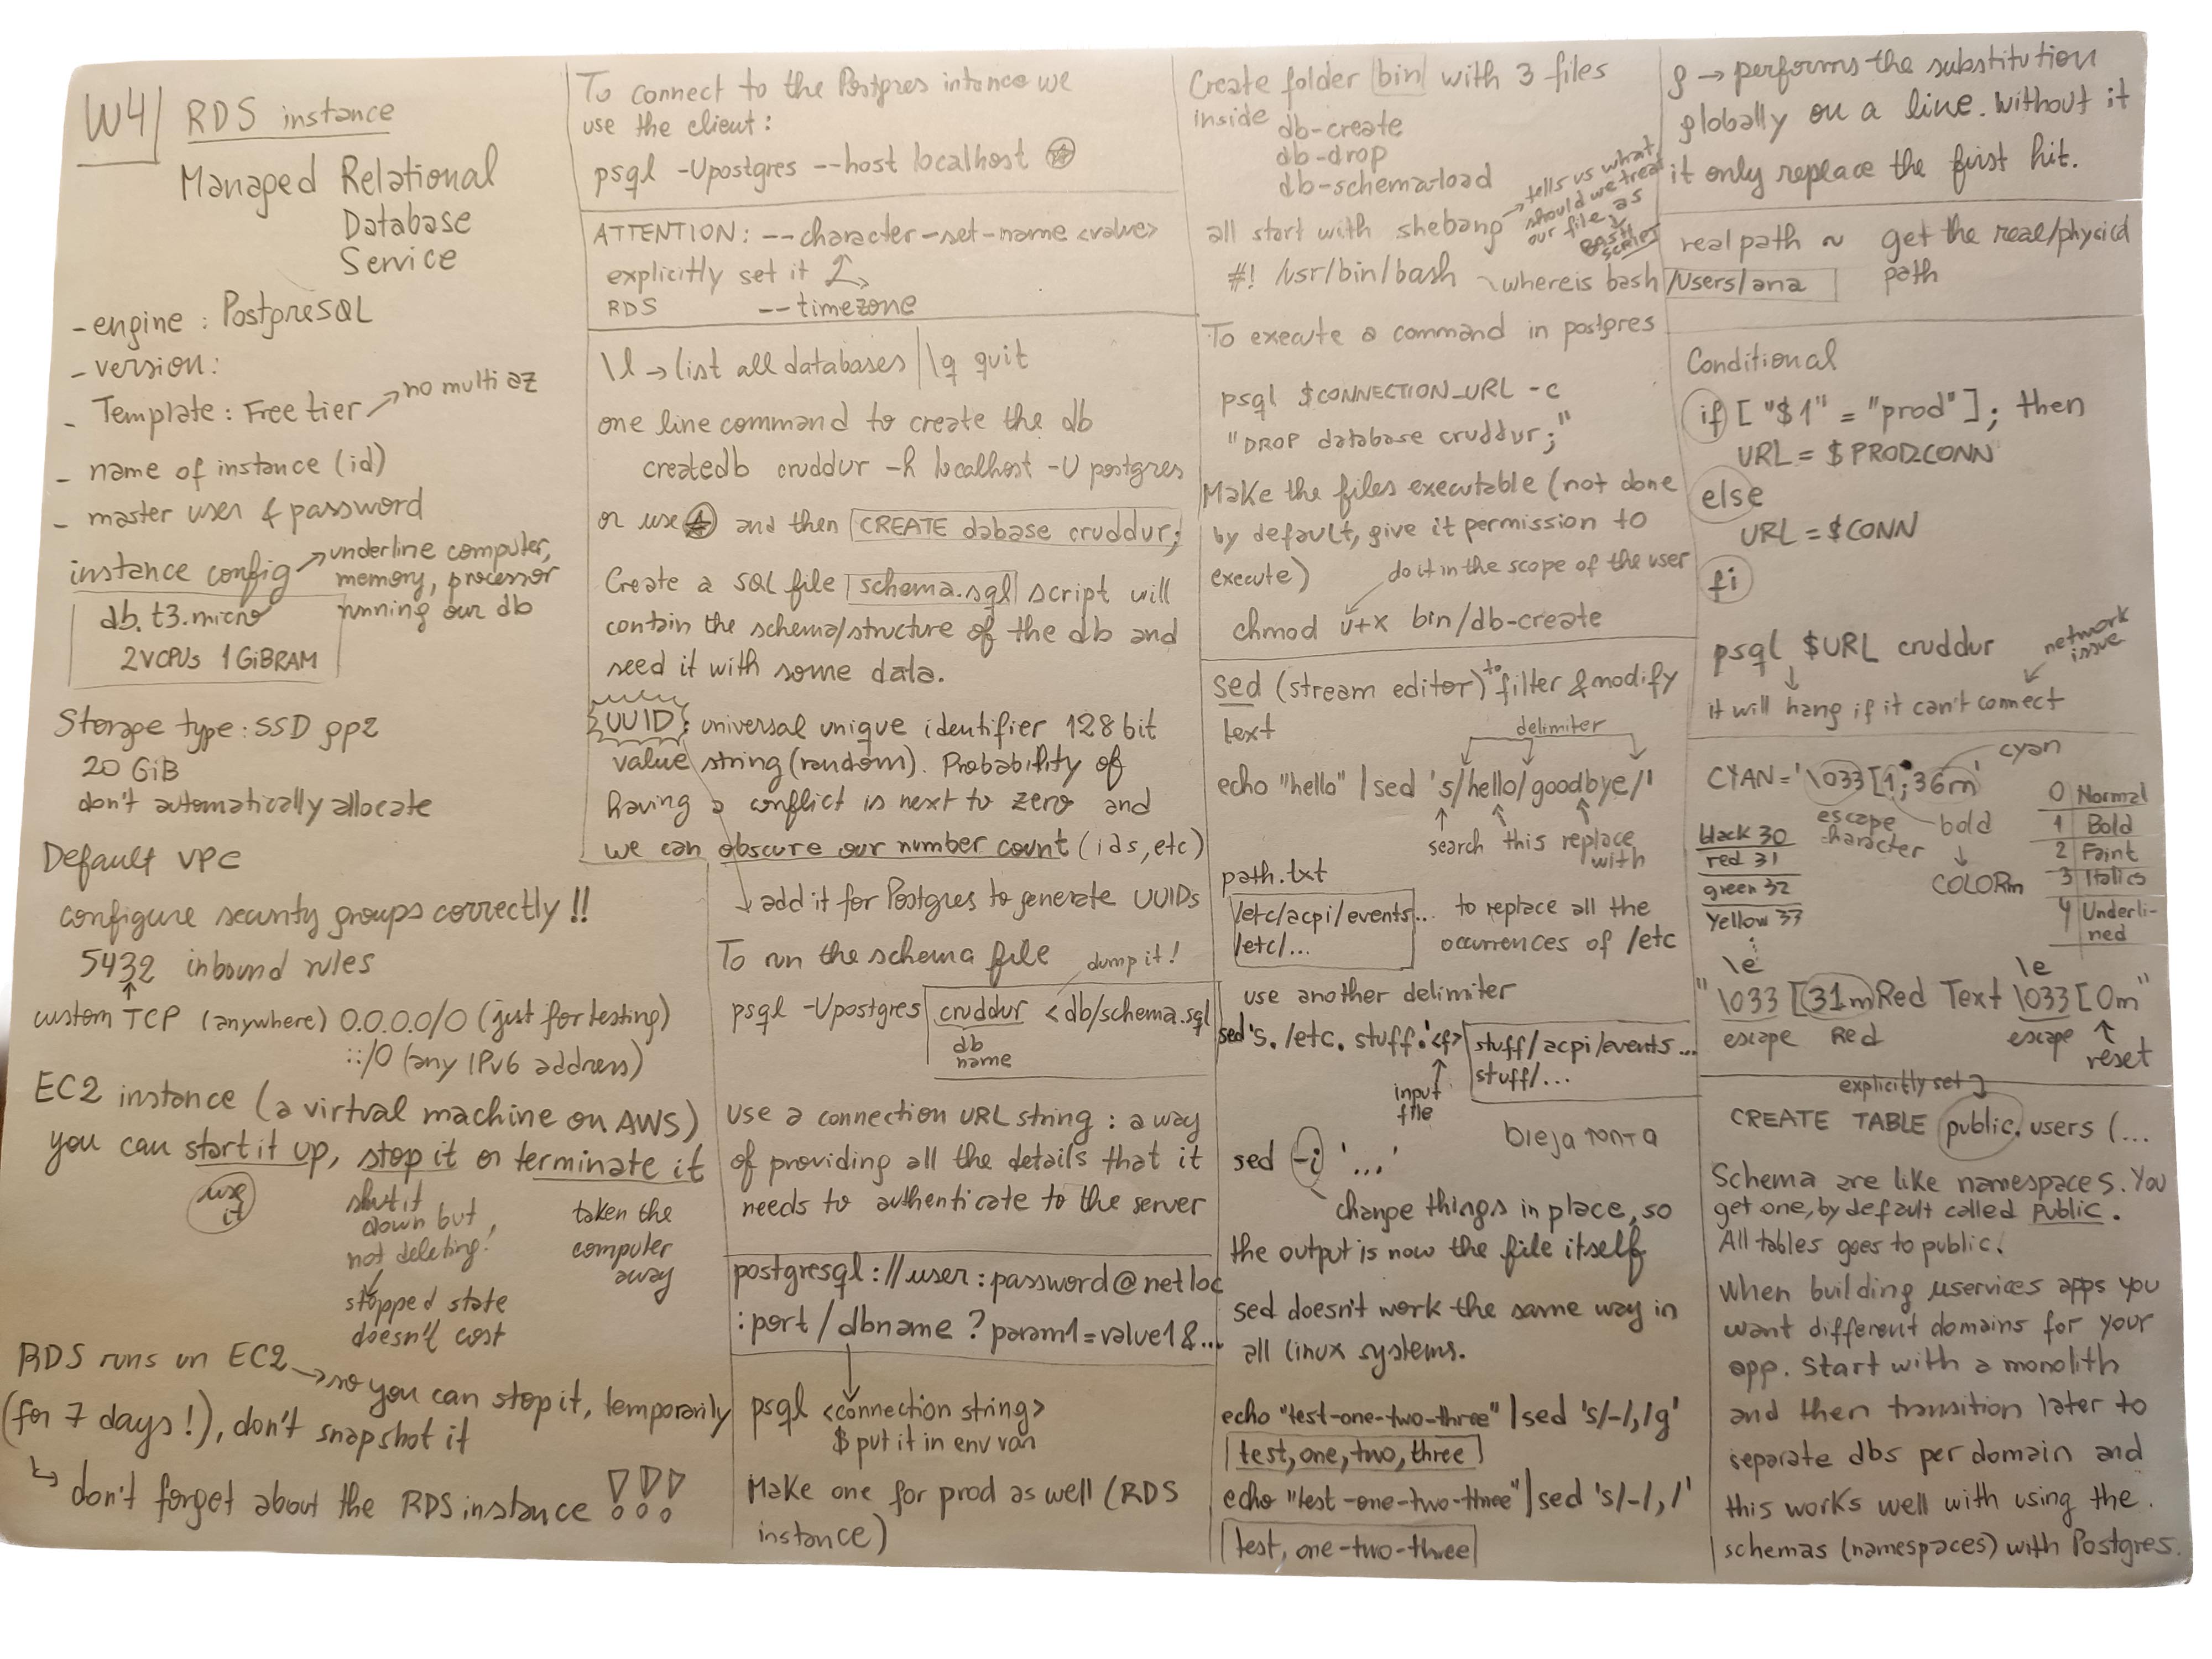 W4
RDS instance
Managed Relational
Database
Service
- engine : PostgreSQL
- version:
- Template: Free tier → no multi az
- name of instance (id)
- master user & password
instance config → underline computer,
memory, processor
running our db
db.t3.micro
2VCPUs 1GiBRAM
Storage type: SSD gp2
20 GiB
don't automatically allocate
Default VPC
configure security groups correctly !!
5432 inbound rules
custom TCP (anywhere) 0.0.0.0/0 (just for testing)
::/0 (any IPv6 address)
EC2 instance (a virtual machine on AWS)
you can start it up, stop it or terminate it
use
it
shut it
down but
not deleting!
stopped state
doesn't cost
taken the
computer
away
RDS runs on EC2 → so you can stop it, temporarily
(for 7 days!), don't snapshot it
↳ don't forget about the RDS instance !!!
To connect to the Postgres intance we
use the client:
psql -Upostgres --host localhost ☆
ATTENTION: --character-set-name <value>
explicitly set it
RDS --timezone
\l → list all databases | \q quit
one line command to create the db
createdb cruddur -h localhost -U postgres
or use ☆ and then CREATE dabase cruddur;
Create a SQL file schema.sql script will
contain the schema/structure of the db and
seed it with some data.
UUID: universal unique identifier 128 bit
value string (random). Probability of
having a conflict is next to zero and
we can obscure our number count (ids, etc)
↓ add it for Postgres to generate UUIDs
To run the schema file
dump it!
psql -Upostgres cruddur < db/schema.sql
db
name
Use a connection URL string : a way
of providing all the details that it
needs to authenticate to the server
postgresql://user:password@netloc
:port/dbname?param1=value1&...
psql <connection string>
$ put it in env var
Make one for prod as well (RDS
instance)
Create folder bin with 3 files
inside
db-create
db-drop
db-schema-load
all start with shebang → tells us what
should we treat
our file as
BASH
SCRIPT
#! /usr/bin/bash ~ whereis bash
To execute a command in postgres
psql $CONNECTION_URL -c
"DROP database cruddur;"
Make the files executable (not done
by default, give it permission to
execute)
do it in the scope of the user
chmod u+x bin/db-create
sed (stream editor) to filter & modify
text
delimiter
echo "hello" | sed 's/hello/goodbye/'
search this replace
with
path.txt
/etc/acpi/events...
/etc/...
to replace all the
occurrences of /etc
use another delimiter
sed 's. /etc. stuff.' <f>
stuff/acpi/events...
stuff/...
input
file
sed -i '...'
change things in place, so
the output is now the file itself
sed doesn't work the same way in
all linux systems.
echo "test-one-two-three" | sed 's/-/,/g'
test,one,two,three
echo "test-one-two-three" | sed 's/-/,/'
test, one-two-three
g → performs the substitution
globally on a line. Without it
it only replace the first hit.
real path ~ get the real/physical
path
/Users/ana
Conditional
if [ "$1" = "prod" ]; then
URL = $PRODCONN
else
URL = $CONN
fi
psql $URL cruddur
network
issue
it will hang if it can't connect
CYAN='\033[1;36m'
cyan
escape
character
bold
COLORm
black 30
red 31
green 32
Yellow 33
0 Normal
1 Bold
2 Faint
3 Italics
4 Underli-
ned
\e
\e
"\033[31mRed Text \033[0m"
escape Red escape reset
explicitly set
CREATE TABLE public.users (...
Schema are like namespaces. You
get one, by default called public.
All tables goes to public.
When building μservices apps you
want different domains for your
app. Start with a monolith
and then transition later to
separate dbs per domain and
this works well with using the
schemas (namespaces) with Postgres.